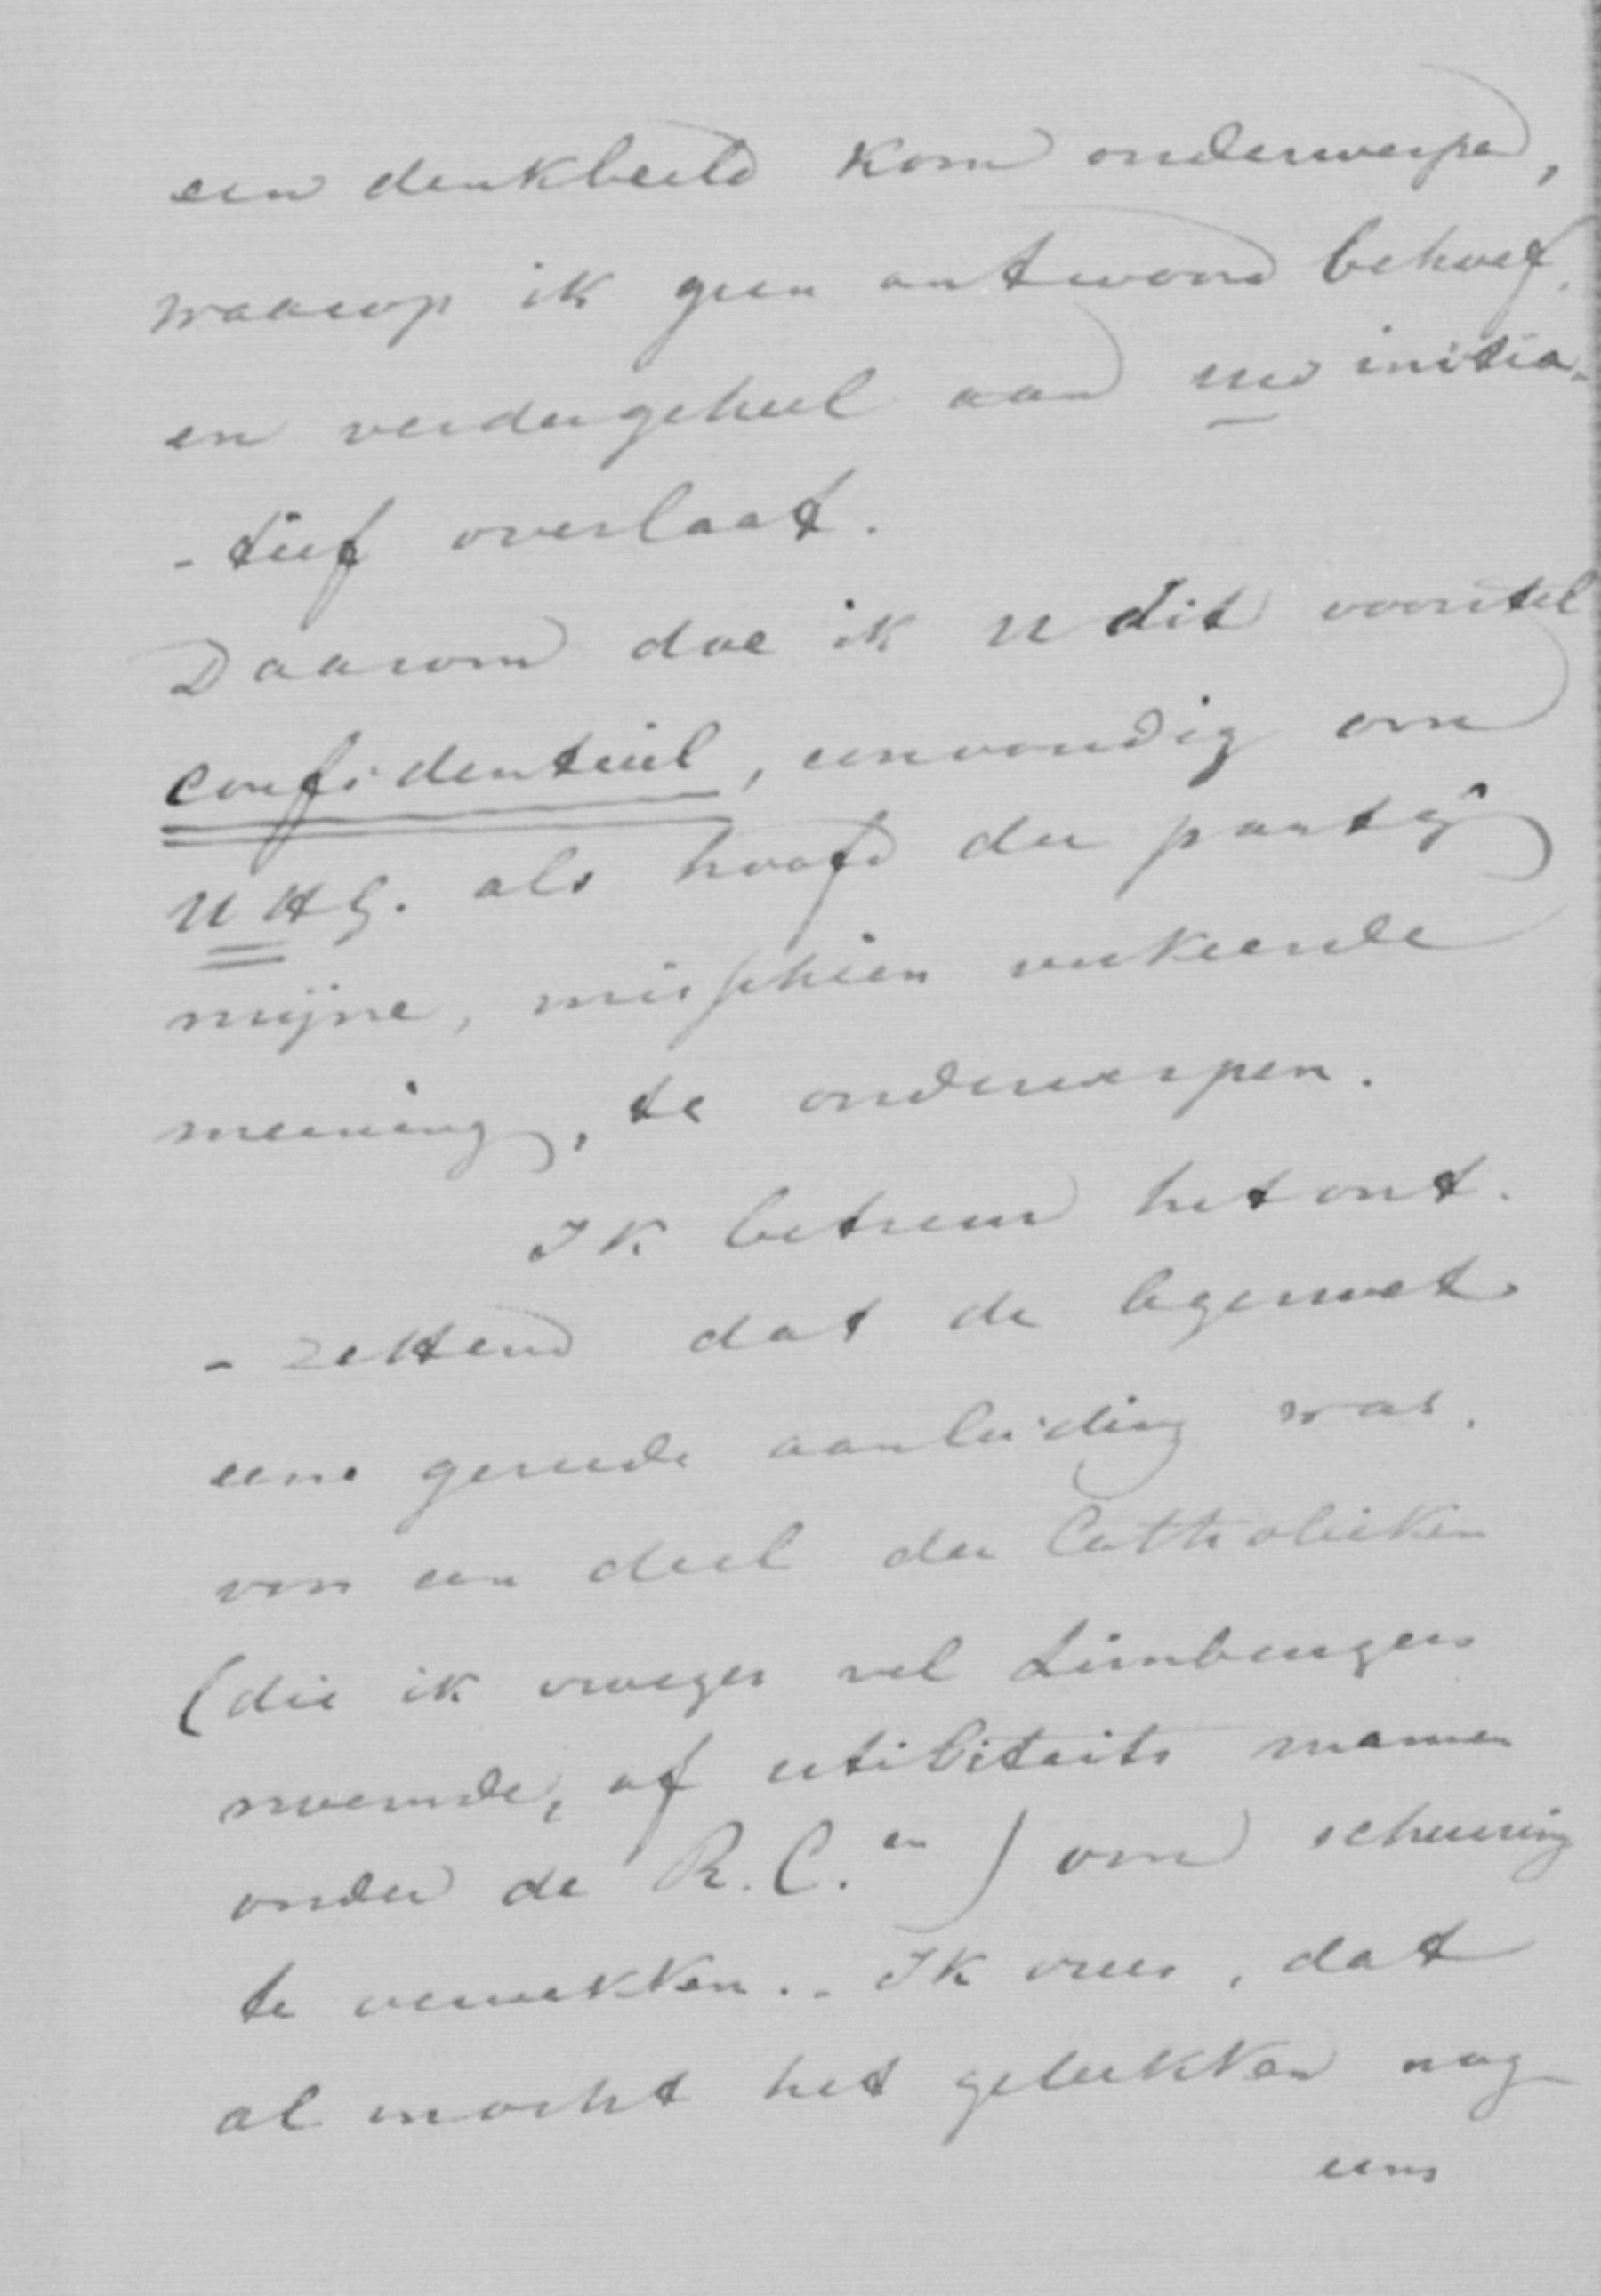 een denkbeeld kom onderwerpen,
waarop ik geen antwoord behoef,
en verder geheel aan uw initia-
-tief overlaat.
Daarom doe ik u dit voorstel
confidentieel, eenvoudig om
U HG. als hoofd der partij
mijne, misschien verkeerde
meening, te onderwerpen.
Ik betreur het ont-
-zettend dat de legerwet
eene gereede aanleiding was,
voor een deel der Catholieken
(die ik vroeger wel Limburgers
noemde, of utiliteits mannen
onder de R.C.en) om scheuring
te verwekken.. Ik vrees, dat
al mocht het gelukken nog
eens